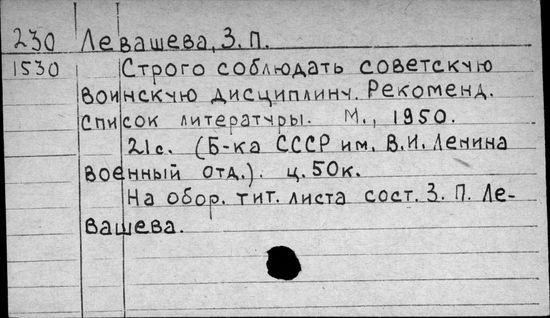 230 Левашева, З. П.
1530 Строго соблюдать советскую
воинскую дисциплину. Рекоменд.
список литературы. М., 1950.
21с. (Б-ка СССР им. В.И. Ленина
военный отд.). ц. 50к.
На обор. тит. листа сост. З. П. Ле-
вашева.